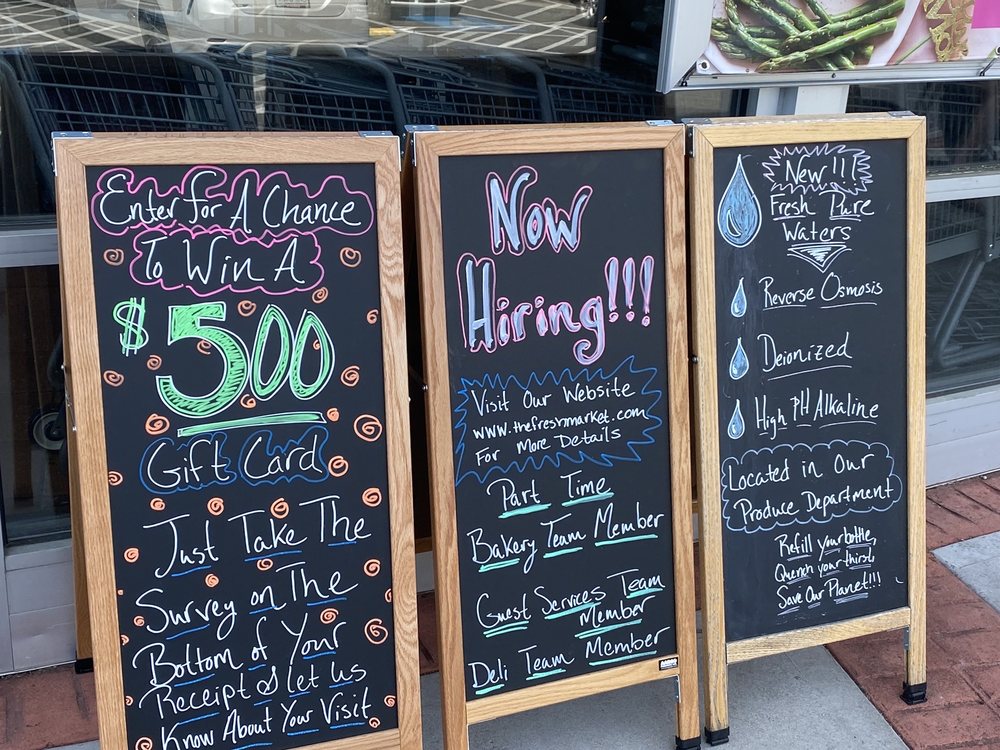 Enter for A Chance
To Win A
$500
Gift Card
Just Take The
Survey on The
Bottom of Your
Receipt & let us
Know About Your Visit
Now
Hiring!!!
Visit Our Website
www.thefreshmarket.com
For More Details
Part Time
Bakery Team Member
Guest Services Team
Member
Deli Team Member
New!!!
Fresh Pure
Waters
Reverse Osmosis
Deionized
High PH Alkaline
Located in Our
Produce Department
Refill your bottle,
Quench your thirst,
Save Our Planet!!!